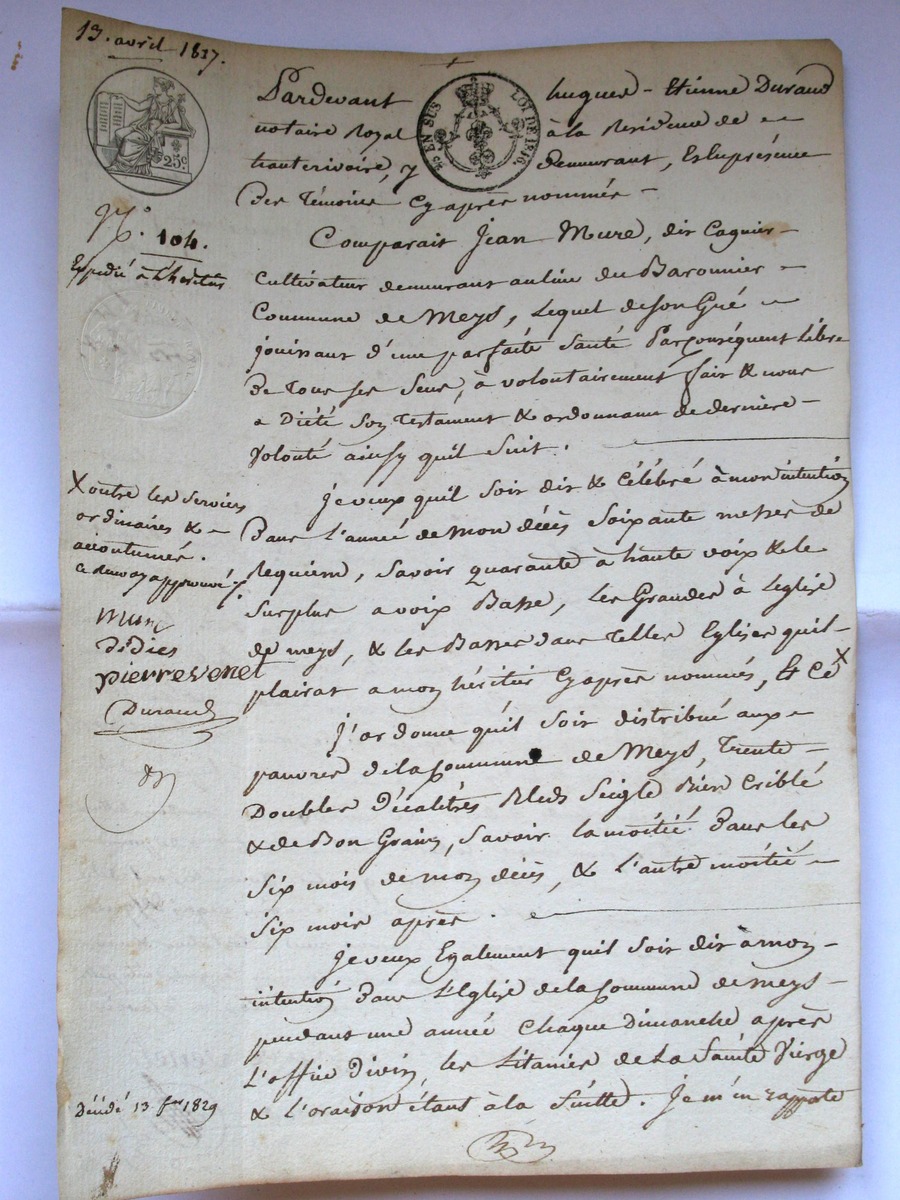 13. avril 1817.
25c
EN SUS LOI DE 1816.
Pardevant hugues - Etienne Durand
notaire Royal à la Residence de
hauterivoire, y demeurant, & en présence
Des Témoins Cy après nommés -
N.° 104.
Expedié à L'héritier
Comparait Jean Mure, dit Cagnier -
Cultivateur demeurant au lieu du Baronnier -
Commune de Meys, Lequel de son Gré
jouissant d'une parfaite Santé Par conséquent Libre
De Tous ses Sens, à volontairement fait & nous
a Dicté Son Testament & ordonnance de derniere -
Volonté ainsy quil Suit.
Je veux quil soit dit & Célébré à mon intention
Dans L'année de Mon décès Soixante messes de
Requiem, Savoir quarante à haute voix & le
Surplus a voix Basse, Les Grandes à L'eglise
de meys, & les Basses dans Telles Eglises quil -
plairat a mon héritier Cy après nommés, Et Cé X
X outre les Services
ordinaires & -
accoutumés.
Ce renvoy approuvé
Mure
Didies
pierre venet
Durand
J'ordonne quil Soit distribué aux
pauvres de la Commune de Meys, Trente -
Doubles Décalitres Bled Seigle Bien Criblé
& de Bon Grain, Savoir la moitié Dans les
Six mois de mon décès, & L'autre moitié -
Six mois après.
Je veux Egalement quil Soit dit à mon -
intention dans L'Eglise de la Commune de meys -
pendant une année Chaque Dimanche après
L'office Divin les Litanies de La Sainte Vierge
& L'oraison étant à la Suitte. Je m'en rapporte
Décédé 13 fer 1829